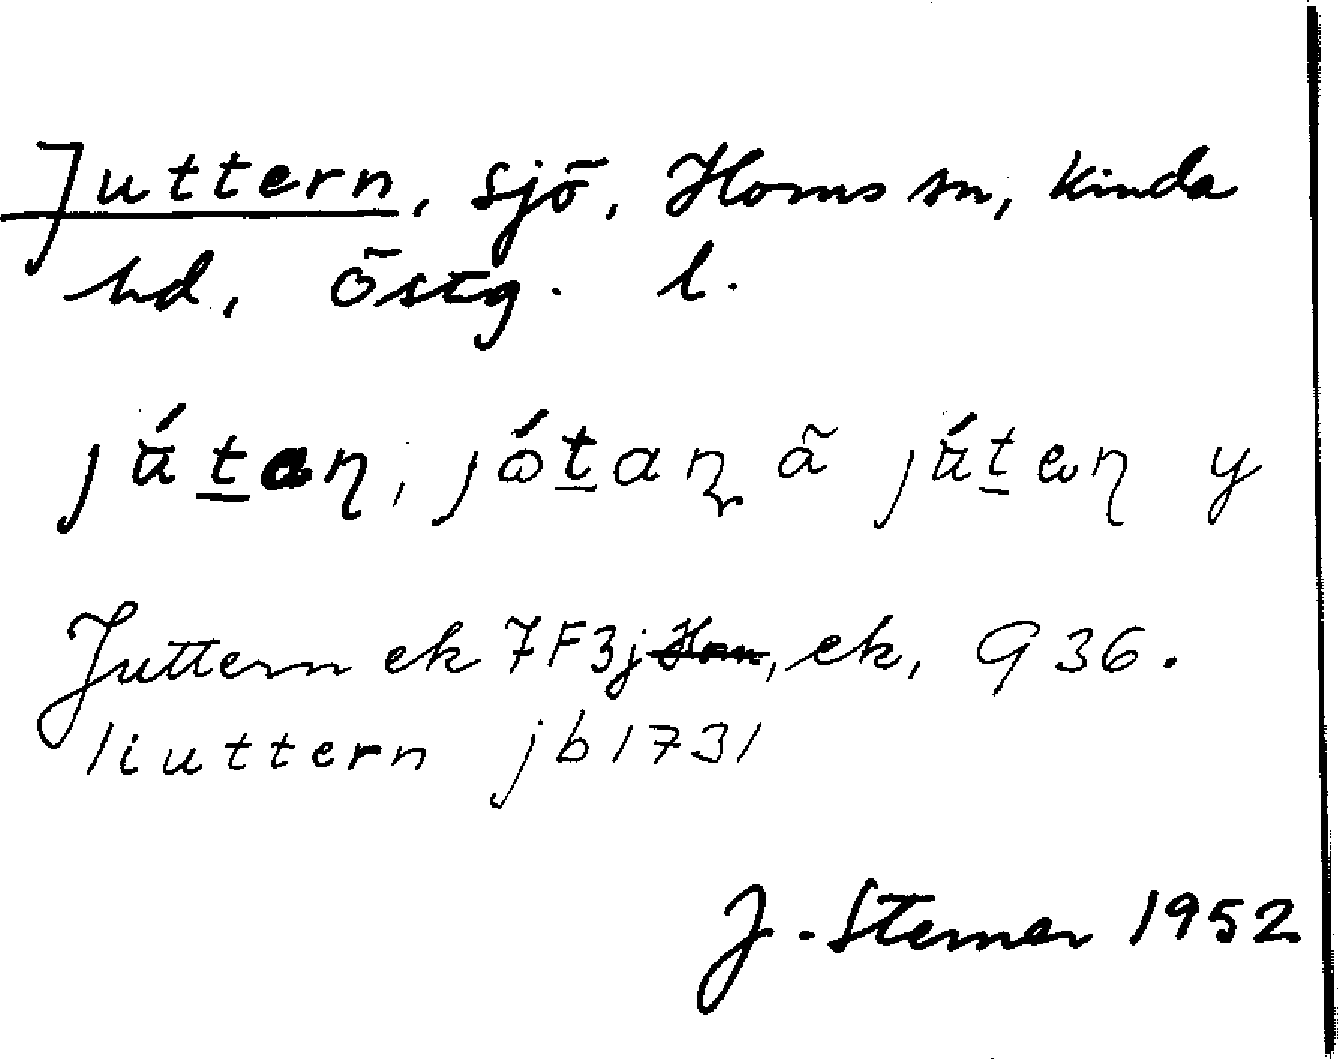 Juttern, sjö, Horns sn, Kinda
hd, Östg. l.
jú̈tan, jótan ä jú̈ten y
Juttern ek 7F3j, ek, 936.
Iiuttern jb 1731
J. Sterner 1952